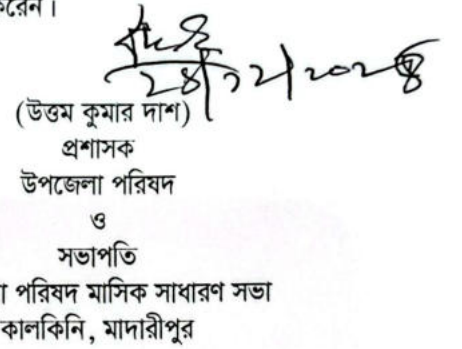 করেন।
২৪/১২/২০২৪
(উত্তম কুমার দাশ)
প্রশাসক
উপজেলা পরিষদ
ও
সভাপতি
পরিষদ মাসিক সাধারণ সভা
কালকিনি, মাদারীপুর